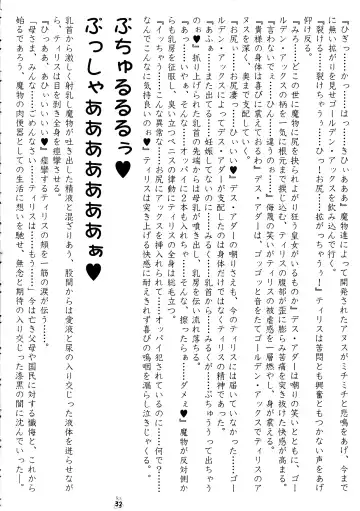 『ひぎっ……かっ……はっ……ひぃぁああ』魔物達によって開発されたアヌスがミチミチと悲鳴をあげ、今まで
に無い拡がりを見せゴールデン・アックスを飲み込んで行く。
『裂ける……裂けちゃうぅ……お尻……拡がっちゃぅぅ！』ティリスは苦悶とも興奮ともつかない声をあげ
仰け反る。
『みろ……どこの世に魔物に尻を抉られよがり狂う皇女がいるものか』デス・アダーは嘲りの笑いとともに、ゴー
ルデン・アックスの柄を一気に根元まで捩じ込む。ティリスの腹部が歪に膨らみ苦痛を突き抜けた快感が襲う。
『言わないでぇ……ひんっ……違うのぉ……』侮蔑の笑いがティリスの被虐感を一層燃やし、身が震える。
『貴様の身体は喜びに震えておるわ』デス・アダーは、ゴッゴッと音をたてゴールデン・アックスでティリスのア
ヌスを深く、奥まで支配していく。
『お尻ぃ……お尻凄……ひぃぃ♥』デス・アダーの嘲りさえも、今のティリスには届いていなかった……ゴー
ルデン・アックスによってデス・アダーが支配したのは身体だけではなくティリスの精神であった。
『あっふ……また出てる……妊娠してないのに……なんで……乳首から……しみるくが……ぷちゅうって出ちゃう
のぉ♥』捻り上げられた乳首の先端からは母乳が噴き出し、乳房を伝い流れ落ちる。
『あっ……いいぃ……そんなっオッパイに2本も入れちゃ……そんな……擦ったらぁ……ダメぇ♥』魔物が反対側か
らも乳房を征服し、臭い立つペニスの律動にティリスの全身は総毛立つ。
『イッちゃう……こんな異常な……お尻にアックスを挿入れられて……オッパイ犯されているのに……何で？……
なんでこんなに気持良いのぉ♥』ティリスは突き上げる快感に耐えきれず喜びの嗚咽を漏らし泣きじゃくる。
ぷちゅるるるるぅ♥
ぷっしゃあああああああぁ♥
乳首から激しく射乳し、魔物が吐き出した精液と混ざりあう、股間からは愛液と尿の入り交じった液体を迸らせな
がら、ティリスは白目を剥き全身を痙攣させる。
『ひっあ、あひぃぃぃぃ♥』痙攣するティリスの頬を一筋の涙が伝う……。
『母さま、みんな……ごめんなさい……ティリスは……もう……』今は亡き父母や国民に対する懺悔と、これから
始るであろう、魔物の肉便器としての生活に想いを馳せ、無念と期待の入り交じった漆黒の闇に沈んでいった――。
32